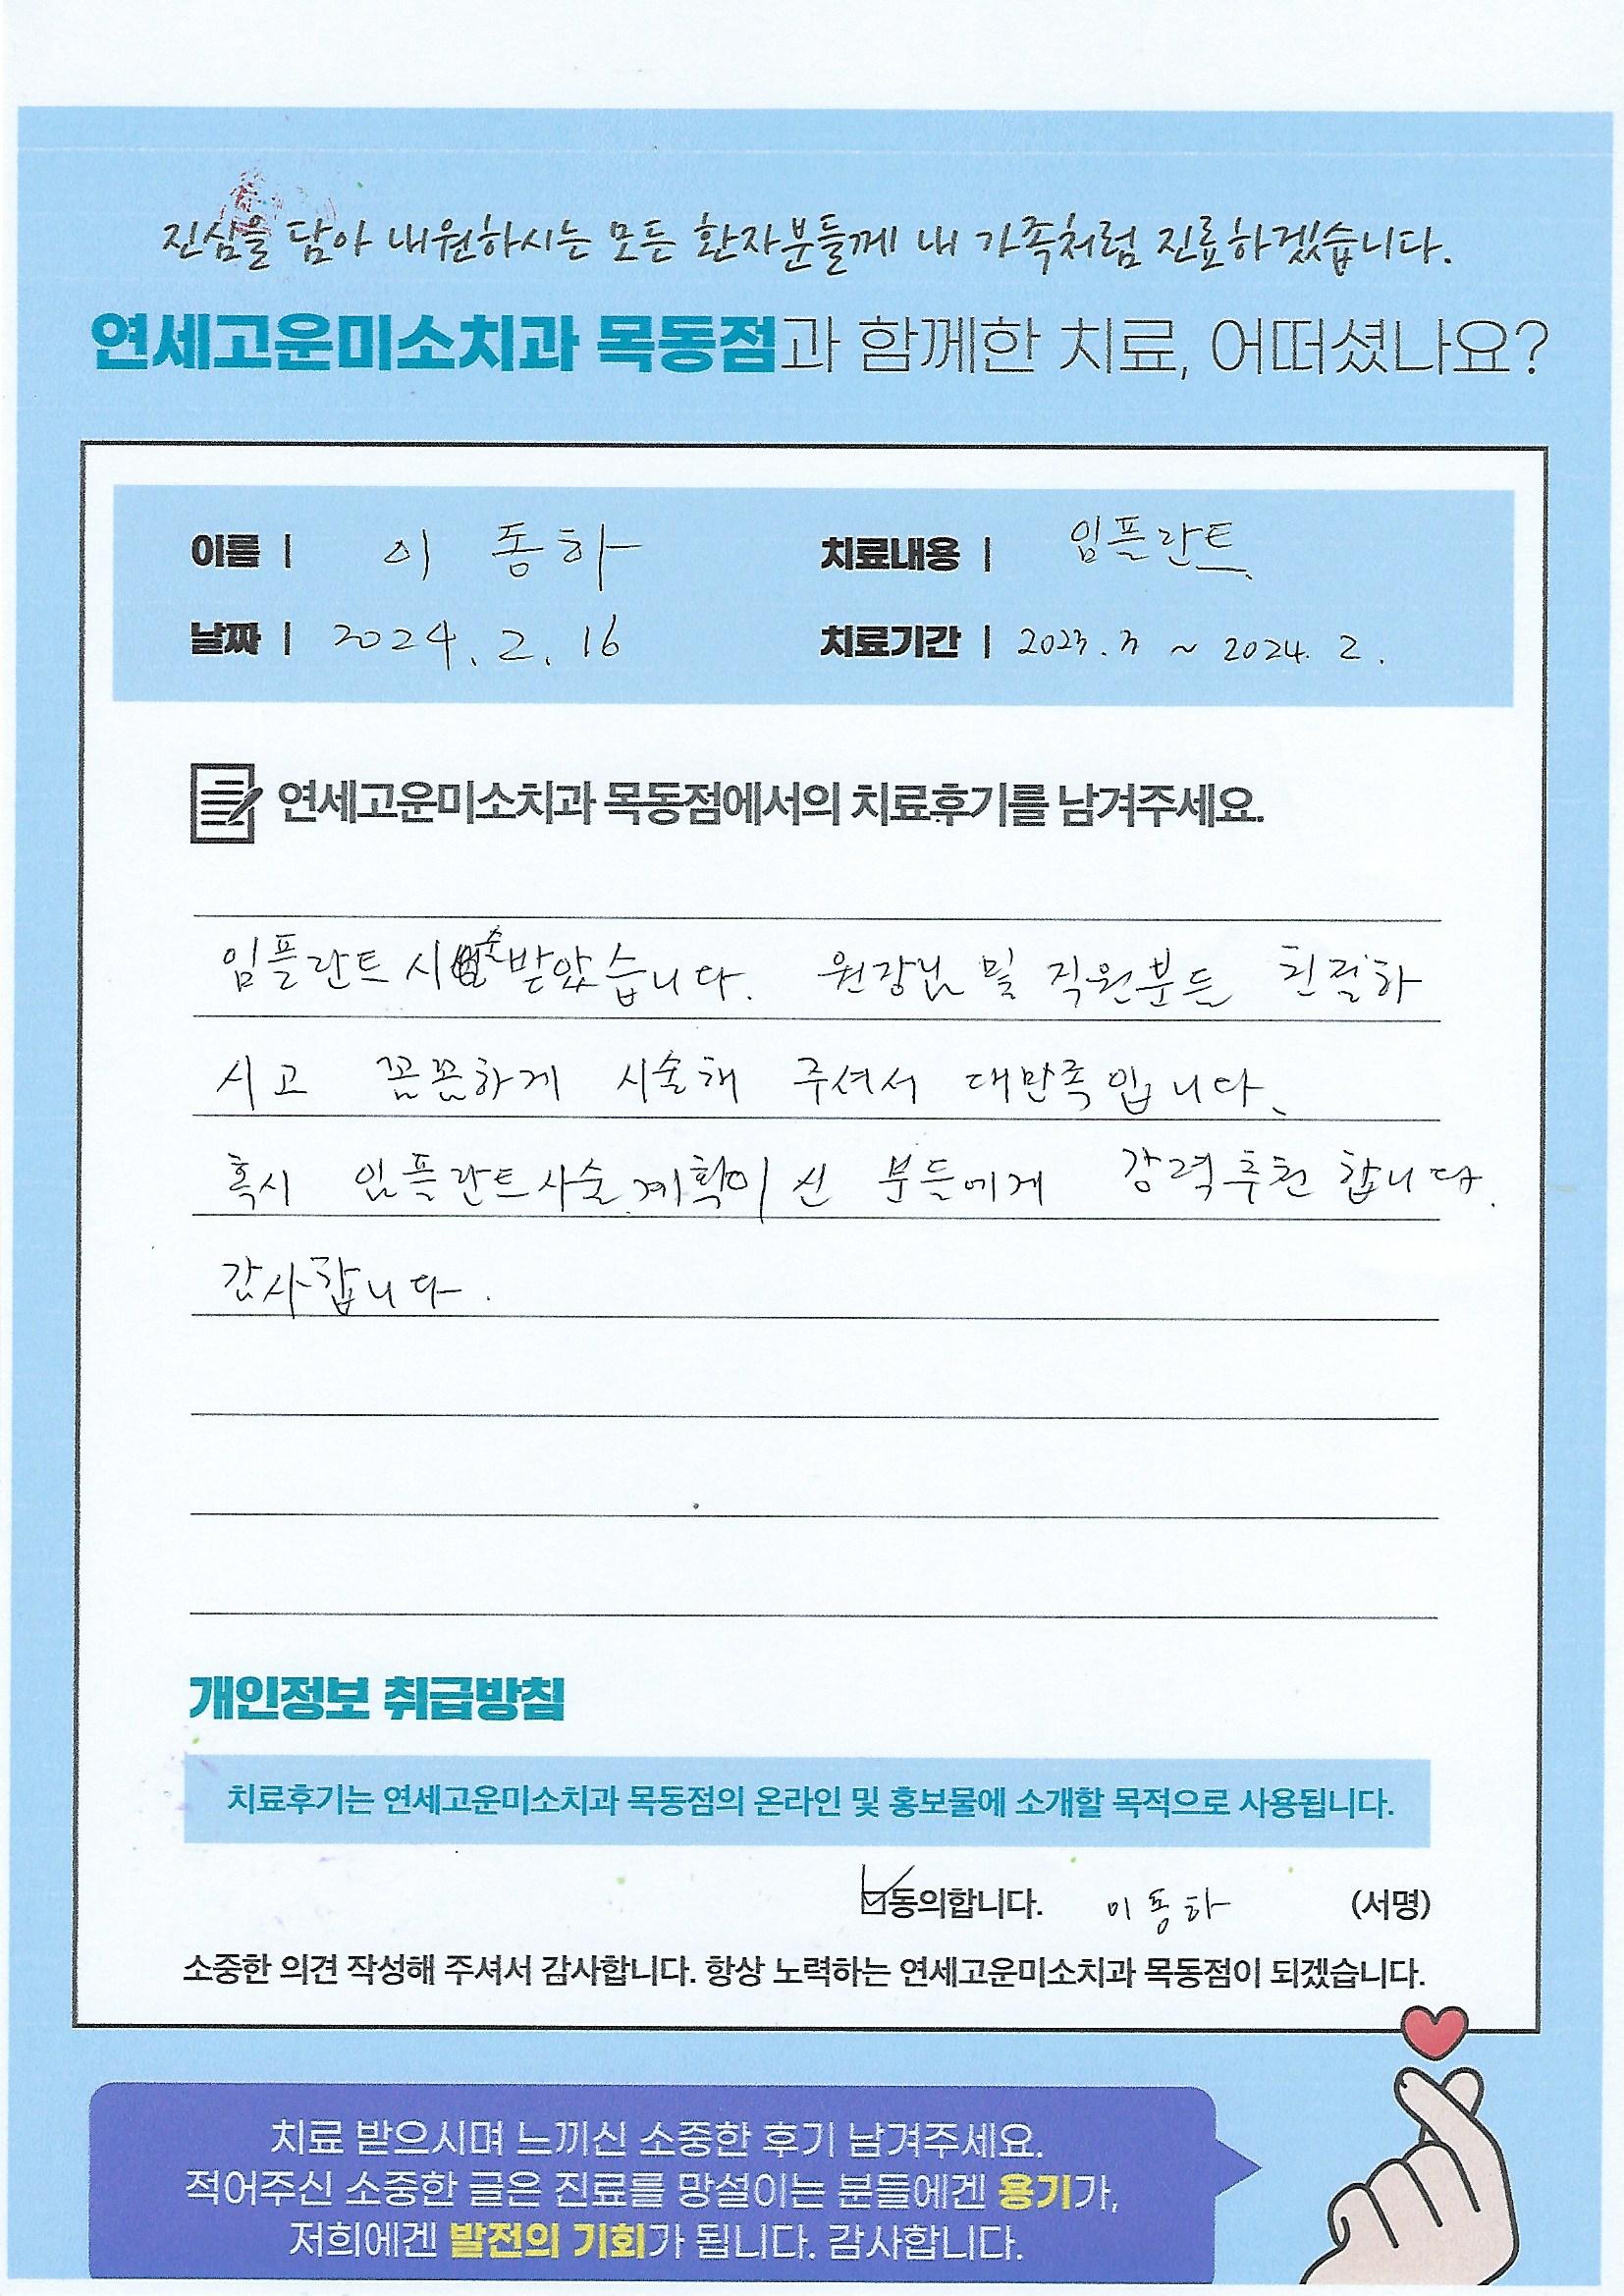 진심을 담아 내원하시는 모든 환자분들께 내 가족처럼 진료하겠습니다.
연세고운미소치과 목동점과 함께한 치료, 어떠셨나요?
이름 | 이동하 치료내용 | 임플란트
날짜 | 2024. 2. 16 치료기간 | 2023. 3 ~ 2024. 2.
연세고운미소치과 목동점에서의 치료후기를 남겨주세요.
임플란트 시술 받았습니다. 원장님 및 직원분든 친절하
시고 꼼꼼하게 시술해 주셔서 대만족입니다.
혹시 임플란트 사술 계획이신 분들에게 강력추천 합니다.
감사합니다.
개인정보 취급방침
치료후기는 연세고운미소치과 목동점의 온라인 및 홍보물에 소개할 목적으로 사용됩니다.
동의합니다. 이동하 (서명)
소중한 의견 작성해 주셔서 감사합니다. 항상 노력하는 연세고운미소치과 목동점이 되겠습니다.
치료 받으시며 느끼신 소중한 후기 남겨주세요.
적어주신 소중한 글은 진료를 망설이는 분들에겐 용기가,
저희에겐 발전의 기회가 됩니다. 감사합니다.